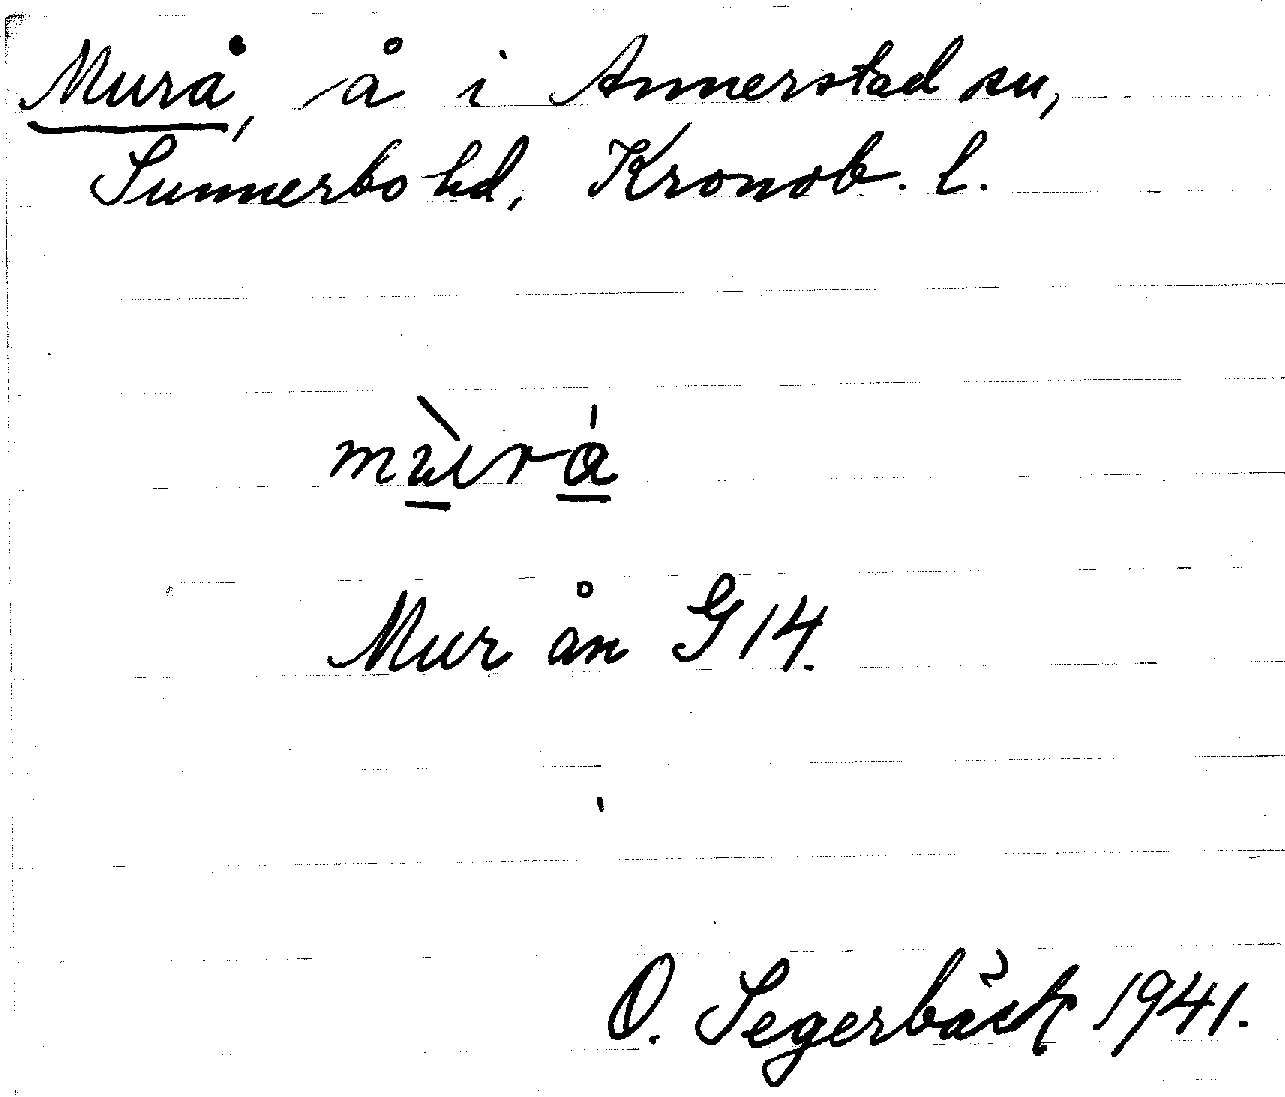 Murå, å i Annerstad sn,
Sunnerbo hd, Kronob. l.
mùrá
Mur ån G 14.
O. Segerbäck 1941.